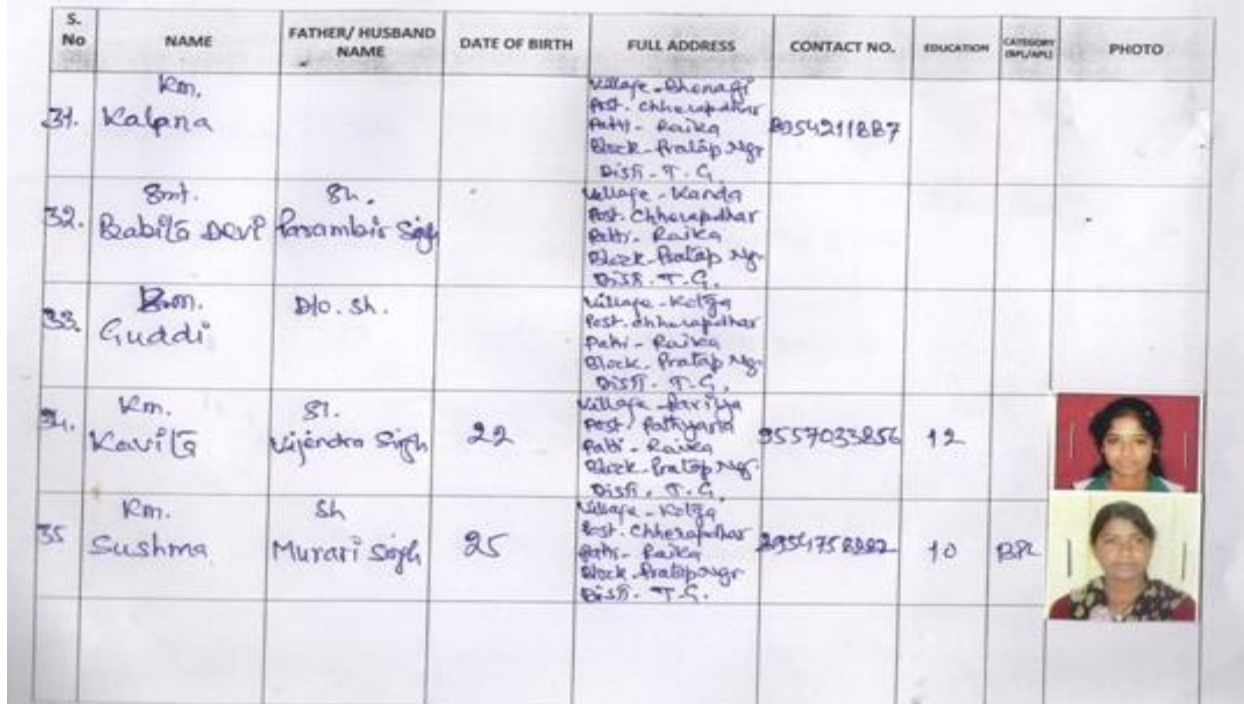 S. No NAME FATHER/ HUSBAND NAME DATE OF BIRTH FULL ADDRESS CONTACT NO. EDUCATION CATEGORY (BPL/APL) PHOTO
31. Km. Kalpana
Village - Bhenagi
Post. Chherapdhar
Patti - Raika
Block - Pratap Ngr
Distt - T. G.
8954211887
32. Smt. Babita Devi
Sh. Parambir Singh
Village - Kanda
Post. Chherapdhar
Patti - Raika
Block - Pratap Ngr
Distt. T. G.
33. Km. Guddi
D/o. Sh.
Village - Kolga
Post. Chherapdhar
Patti - Raika
Block. Pratap Ngr
Distt. T. G.
34. Km. Kavita
Vijendra Singh
22
Village
Post
Patti - Raika
Block - Pratap Ngr.
Distt. T. G.
9557033856
12
35 Km. Sushma
Sh Murari Singh
25
Village - Kolga
Post. Chherapdhar
Patti - Raika
Block - Pratap Ngr
Distt. T. G.
10
BPL